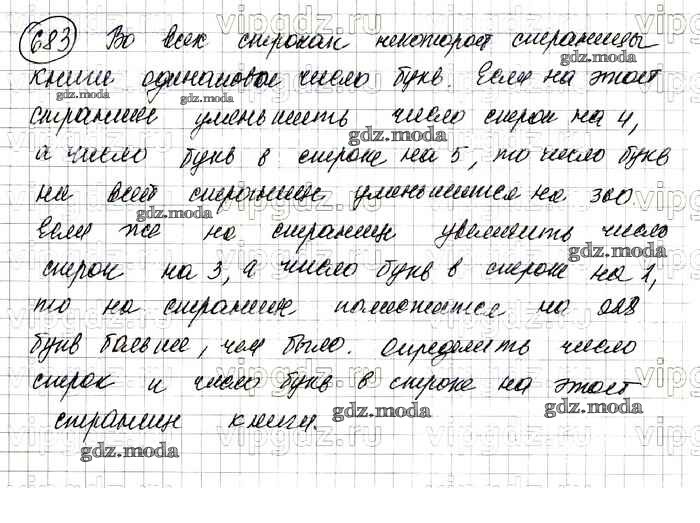 683 Во всех строках некоторой страницы
книги одинаковое число букв. Если на этой
странице уменьшить число строк на 4,
а число букв в строке на 5, то число букв
на всей странице уменьшится на 300
Если же на странице увеличить число
строк на 3, а число букв в строке на 2,
то на странице поместится на 228
букв больше, чем было. Определить число
строк и число букв в строке на этой
странице книги.
gdz.moda
vipgdz.ru